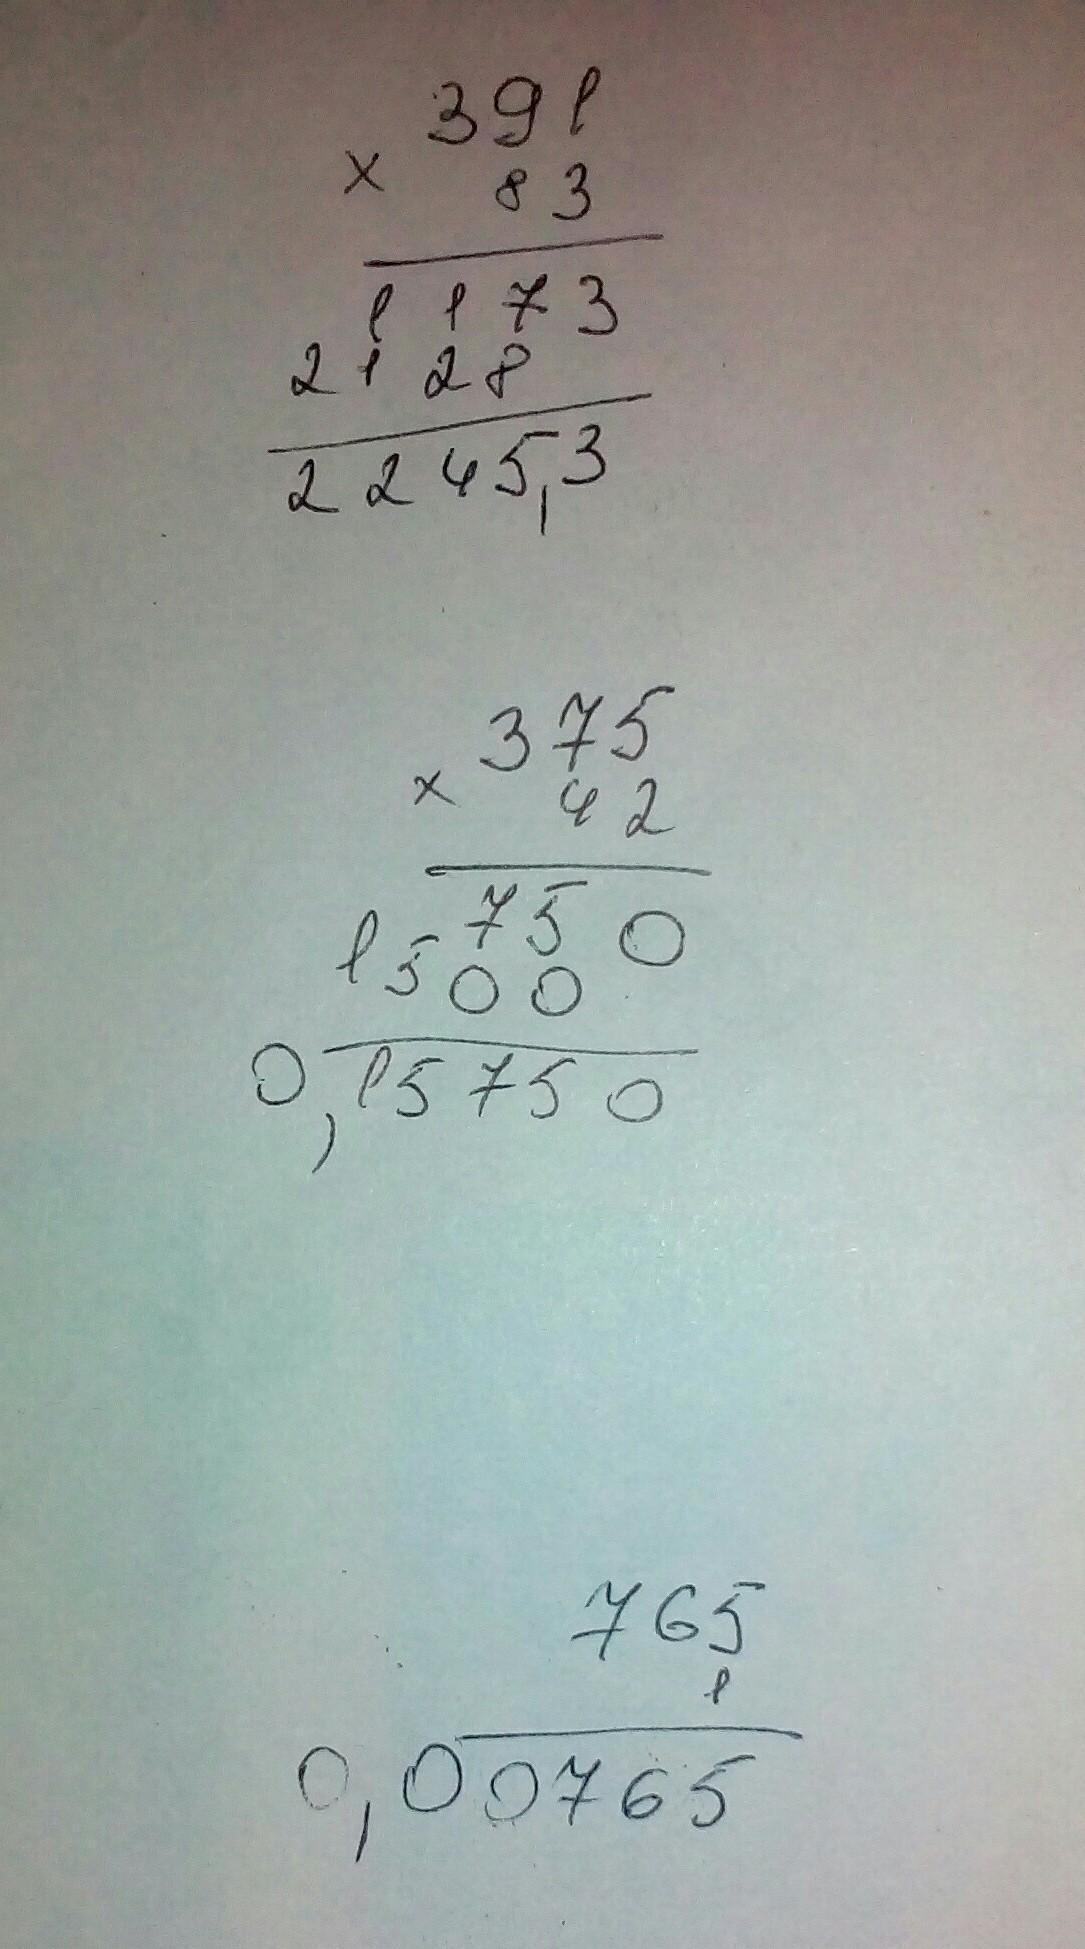 391
× 83
1173
2128
2245,3
375
× 42
750
1500
0,15750
765
1
0,00765